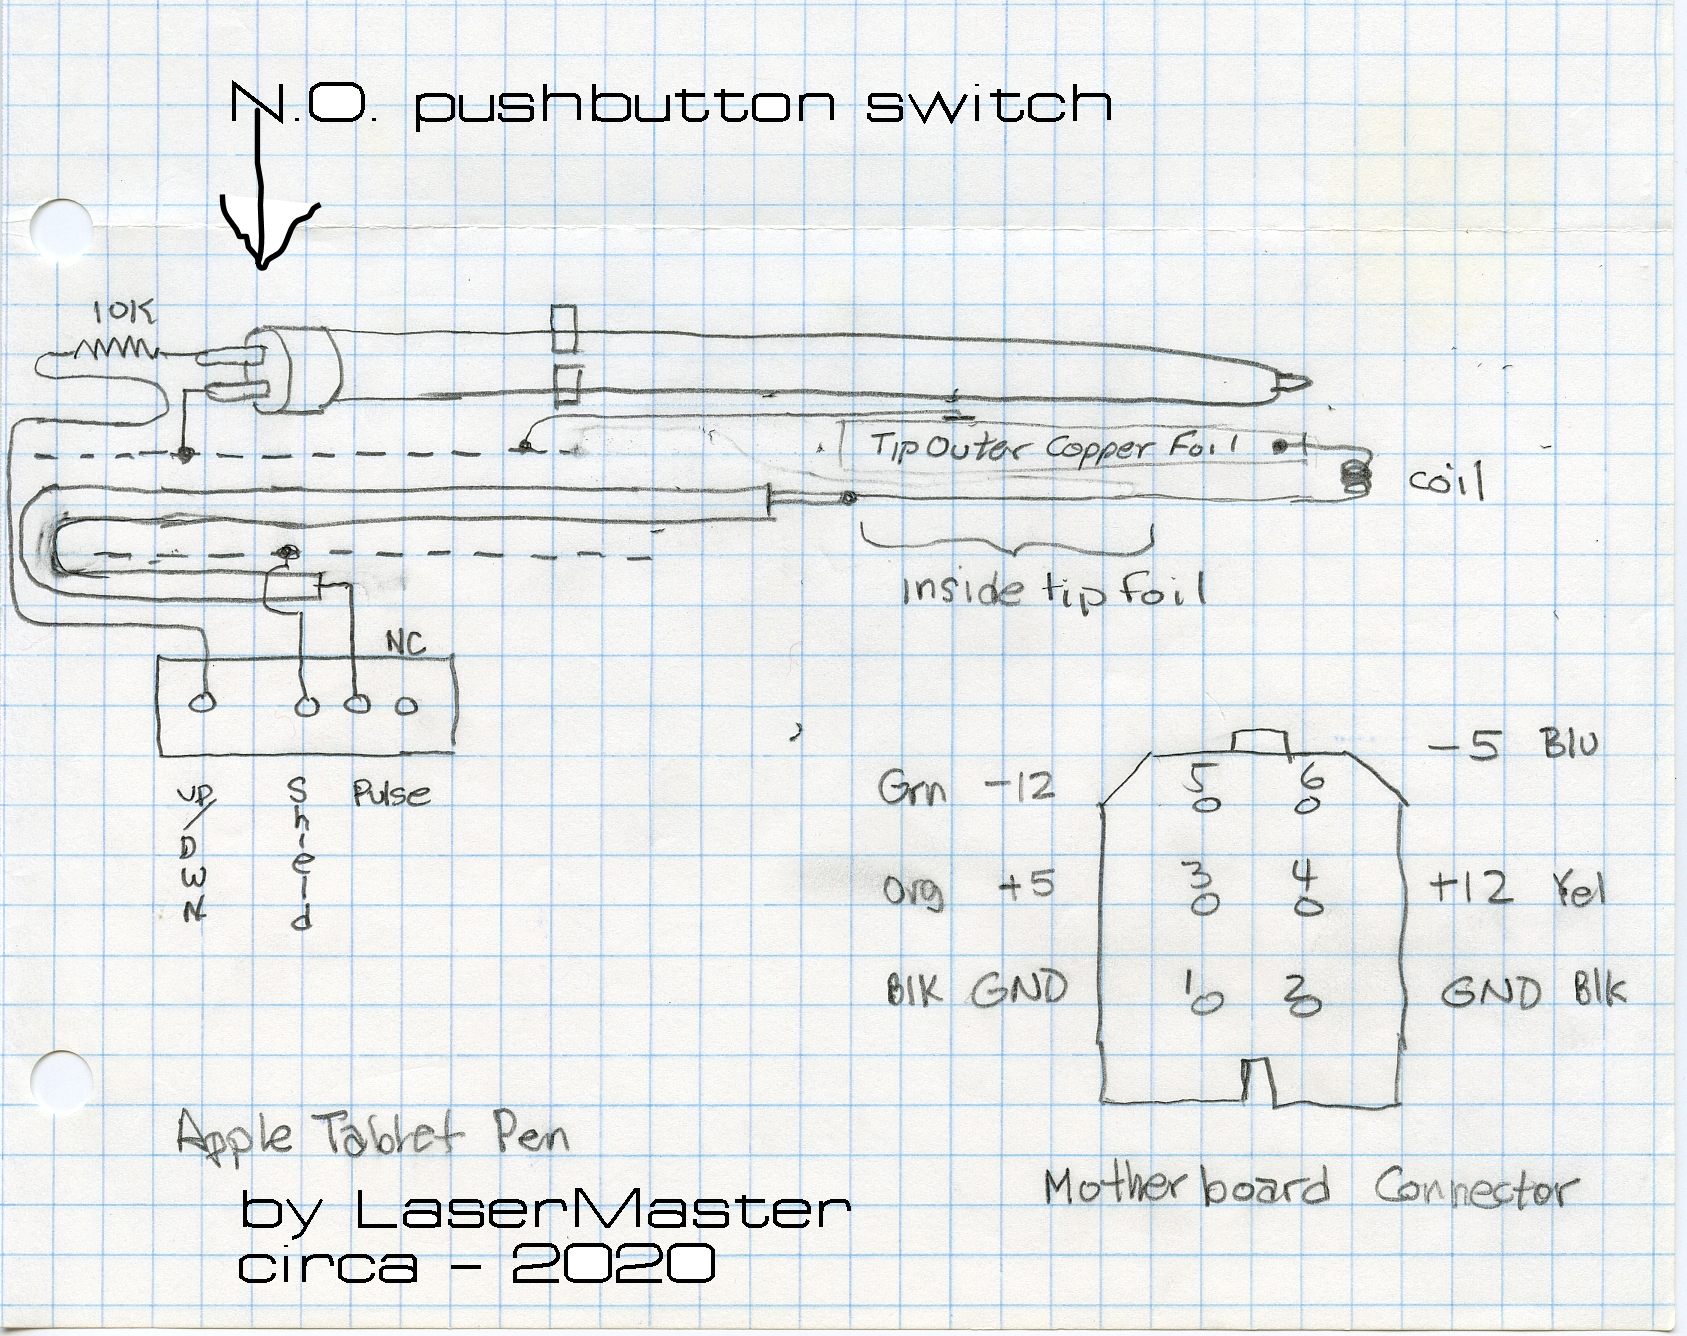 N.O. pushbutton switch
10K
Tip Outer Copper Foil
coil
Inside tip foil
NC
UP/DWN
Shield
Pulse
-5 Blu
Grn -12
5
6
Org +5
3
4
+12 Yel
Blk GND
1
2
GND Blk
Apple Tablet Pen
by LaserMaster
circa - 2020
Motherboard Connector